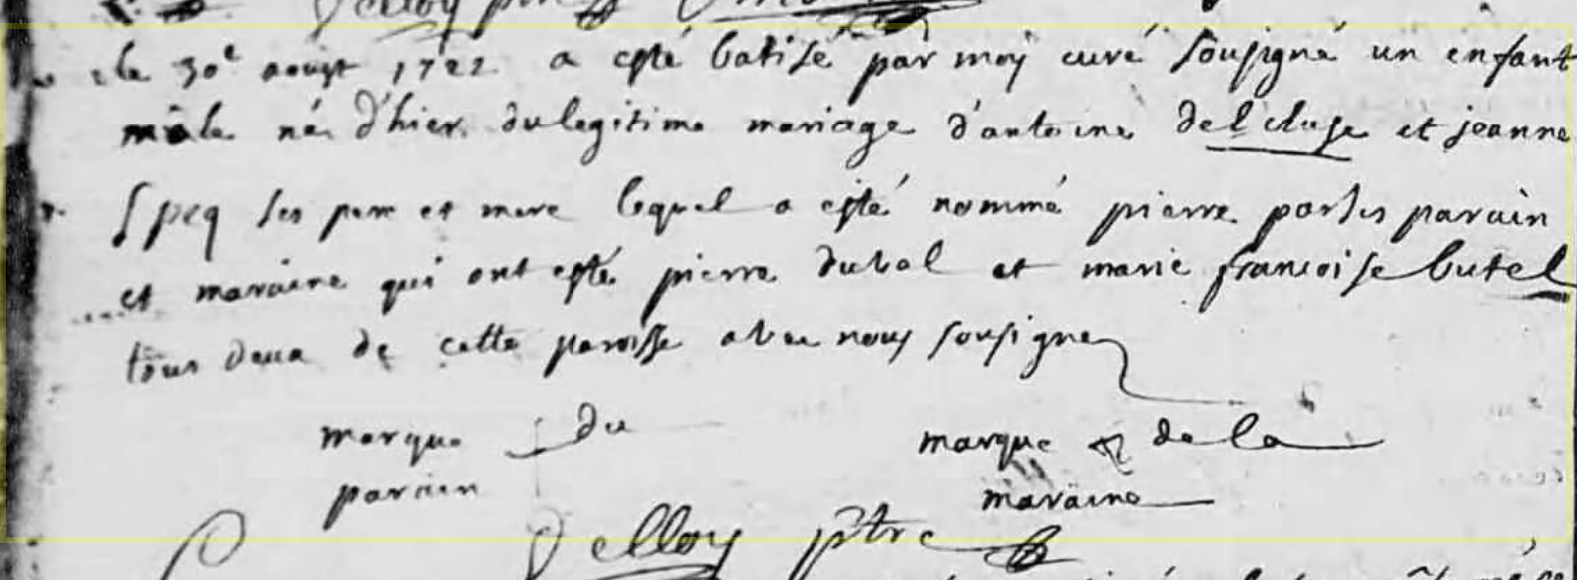 le 30e aoust 1722 a esté batisé par moy curé sousigné un enfant
mâle né d'hier du legitime mariage d'antoine del'cluse et jeanne
speq ses pere et mere lequel a esté nommé pierre par ses parain
et maraine qui ont esté pierre duval et marie francoise butel
tous deux de cette paroisse avec nous sousigne
marque du marque de la
parain maraine
Delloy ptre